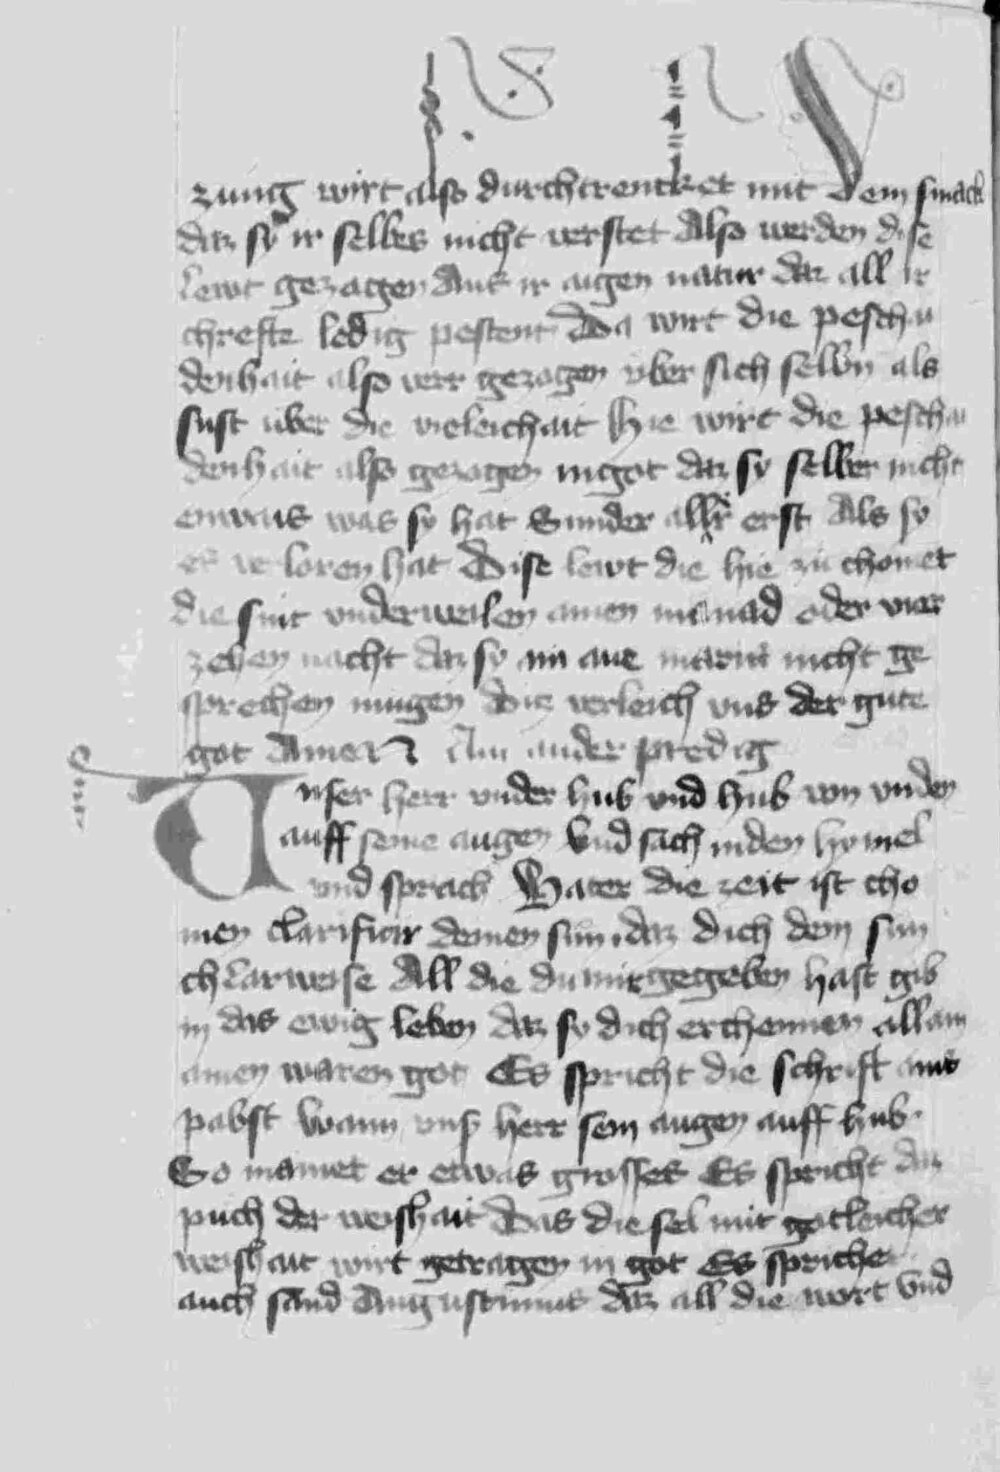 zung wirt also durchtrencket mit dem smack
daz sy ir selbes nicht verstet Also werden dise
lewt gezogen Aus ir aigen natur daz all ir
chrefte ledig pestent Da wirt die peschai
denhait also verr gezogen vber sich selbn als
sust uber die vicleichait Hie wirt die peschai
denhait also gezogen in got daz sy selber nicht
enwais was sy hat Sunder allr erst Als sy
es verloren hat Dise lewt die hie zu chomet
die sint vnderweilen ainen manad oder vier
zehen nacht daz sy ain aue maria nicht ge
sprechen mugen Diz verleich vns der gute
got Amen Ain ander predig
Unser herr vnder hub vnd hub von vnden
auff seine augen Vnd sach in den hymel
vnd sprach Vater die zeit ist cho
men clarificir deinen sun daz dich dein sun
chlarweise All die du mir gegeben hast gib
in das ewig leben daz sy dich erchennen allain
ainen waren got Es spricht die schrift ains
pabst Wann vnser herr sein augen auff hub
So mainet er etwas grosses Es spricht daz
puch der weishait Das die sel mit gotleicher
weishait wirt getragen in got Es sprichet
auch sand Augustinus daz all die wort Vnd